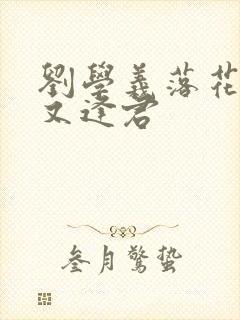 劉學義落花
又逢君
叁月驚蟄